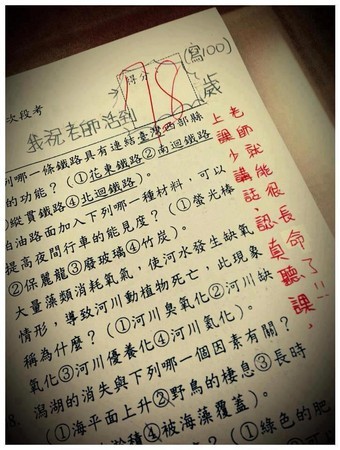 (寫100)
得分
18
次段考
我祝老師活到 歲
老師就能很長命了!!
上課少講話、認真聽課,
列哪一條鐵路具有連結臺灣西部縣
的功能?(①花東鐵路②南迴鐵路
縱貫鐵路④北迴鐵路)。
柏油路面加入下列哪一種材料,可以
提高夜間行車的能見度?(①螢光棒
②保麗龍③廢玻璃④竹炭)。
大量藻類消耗氧氣,使河水發生缺氧
情形,導致河川動植物死亡,此現象
稱為什麼?(①河川臭氧化②河川缺
氧化③河川優養化④河川氮化)。
潟湖的消失與下列哪一個因素有關?
(①海平面上升②野鳥的棲息③長時
④被海藻覆蓋)。
(①綠色的肥